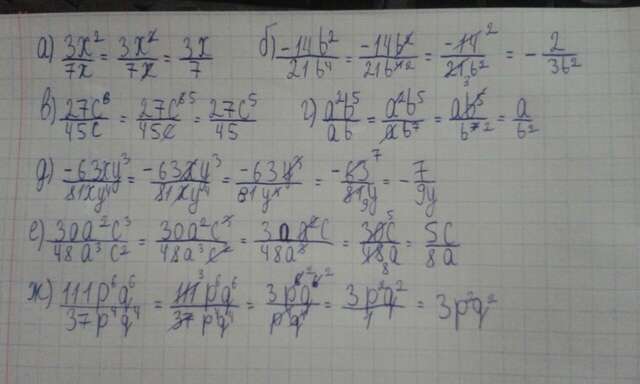 а) 3x²/7x = 3x²/7x = 3x/7 б) -14b²/21b⁴ = -14b²/21b⁴² = -14²/21₃b² = -2/3b²
в) 27c⁶/45c = 27c⁶⁵/45c = 27c⁵/45 г) a²b⁵/ab = a²b⁵/ab⁷ = ab⁵/b⁷² = a/b²
д) -63xy³/81xy⁴ = -63xy³/81xy⁴ = -63y³/81y⁴ = -63⁷/81₉y = -7/9y
е) 30a²c³/48a³c² = 30a²c³/48a³c² = 30a²c/48a³ = 30⁵c/48₈a = 5c/8a
ж) 111p⁶q⁶/37p⁴q⁴ = 111³p⁶q⁶/37p⁴q⁴ = 3p⁶²q⁶²/p⁴q⁴ = 3p²q²/1 = 3p²q²